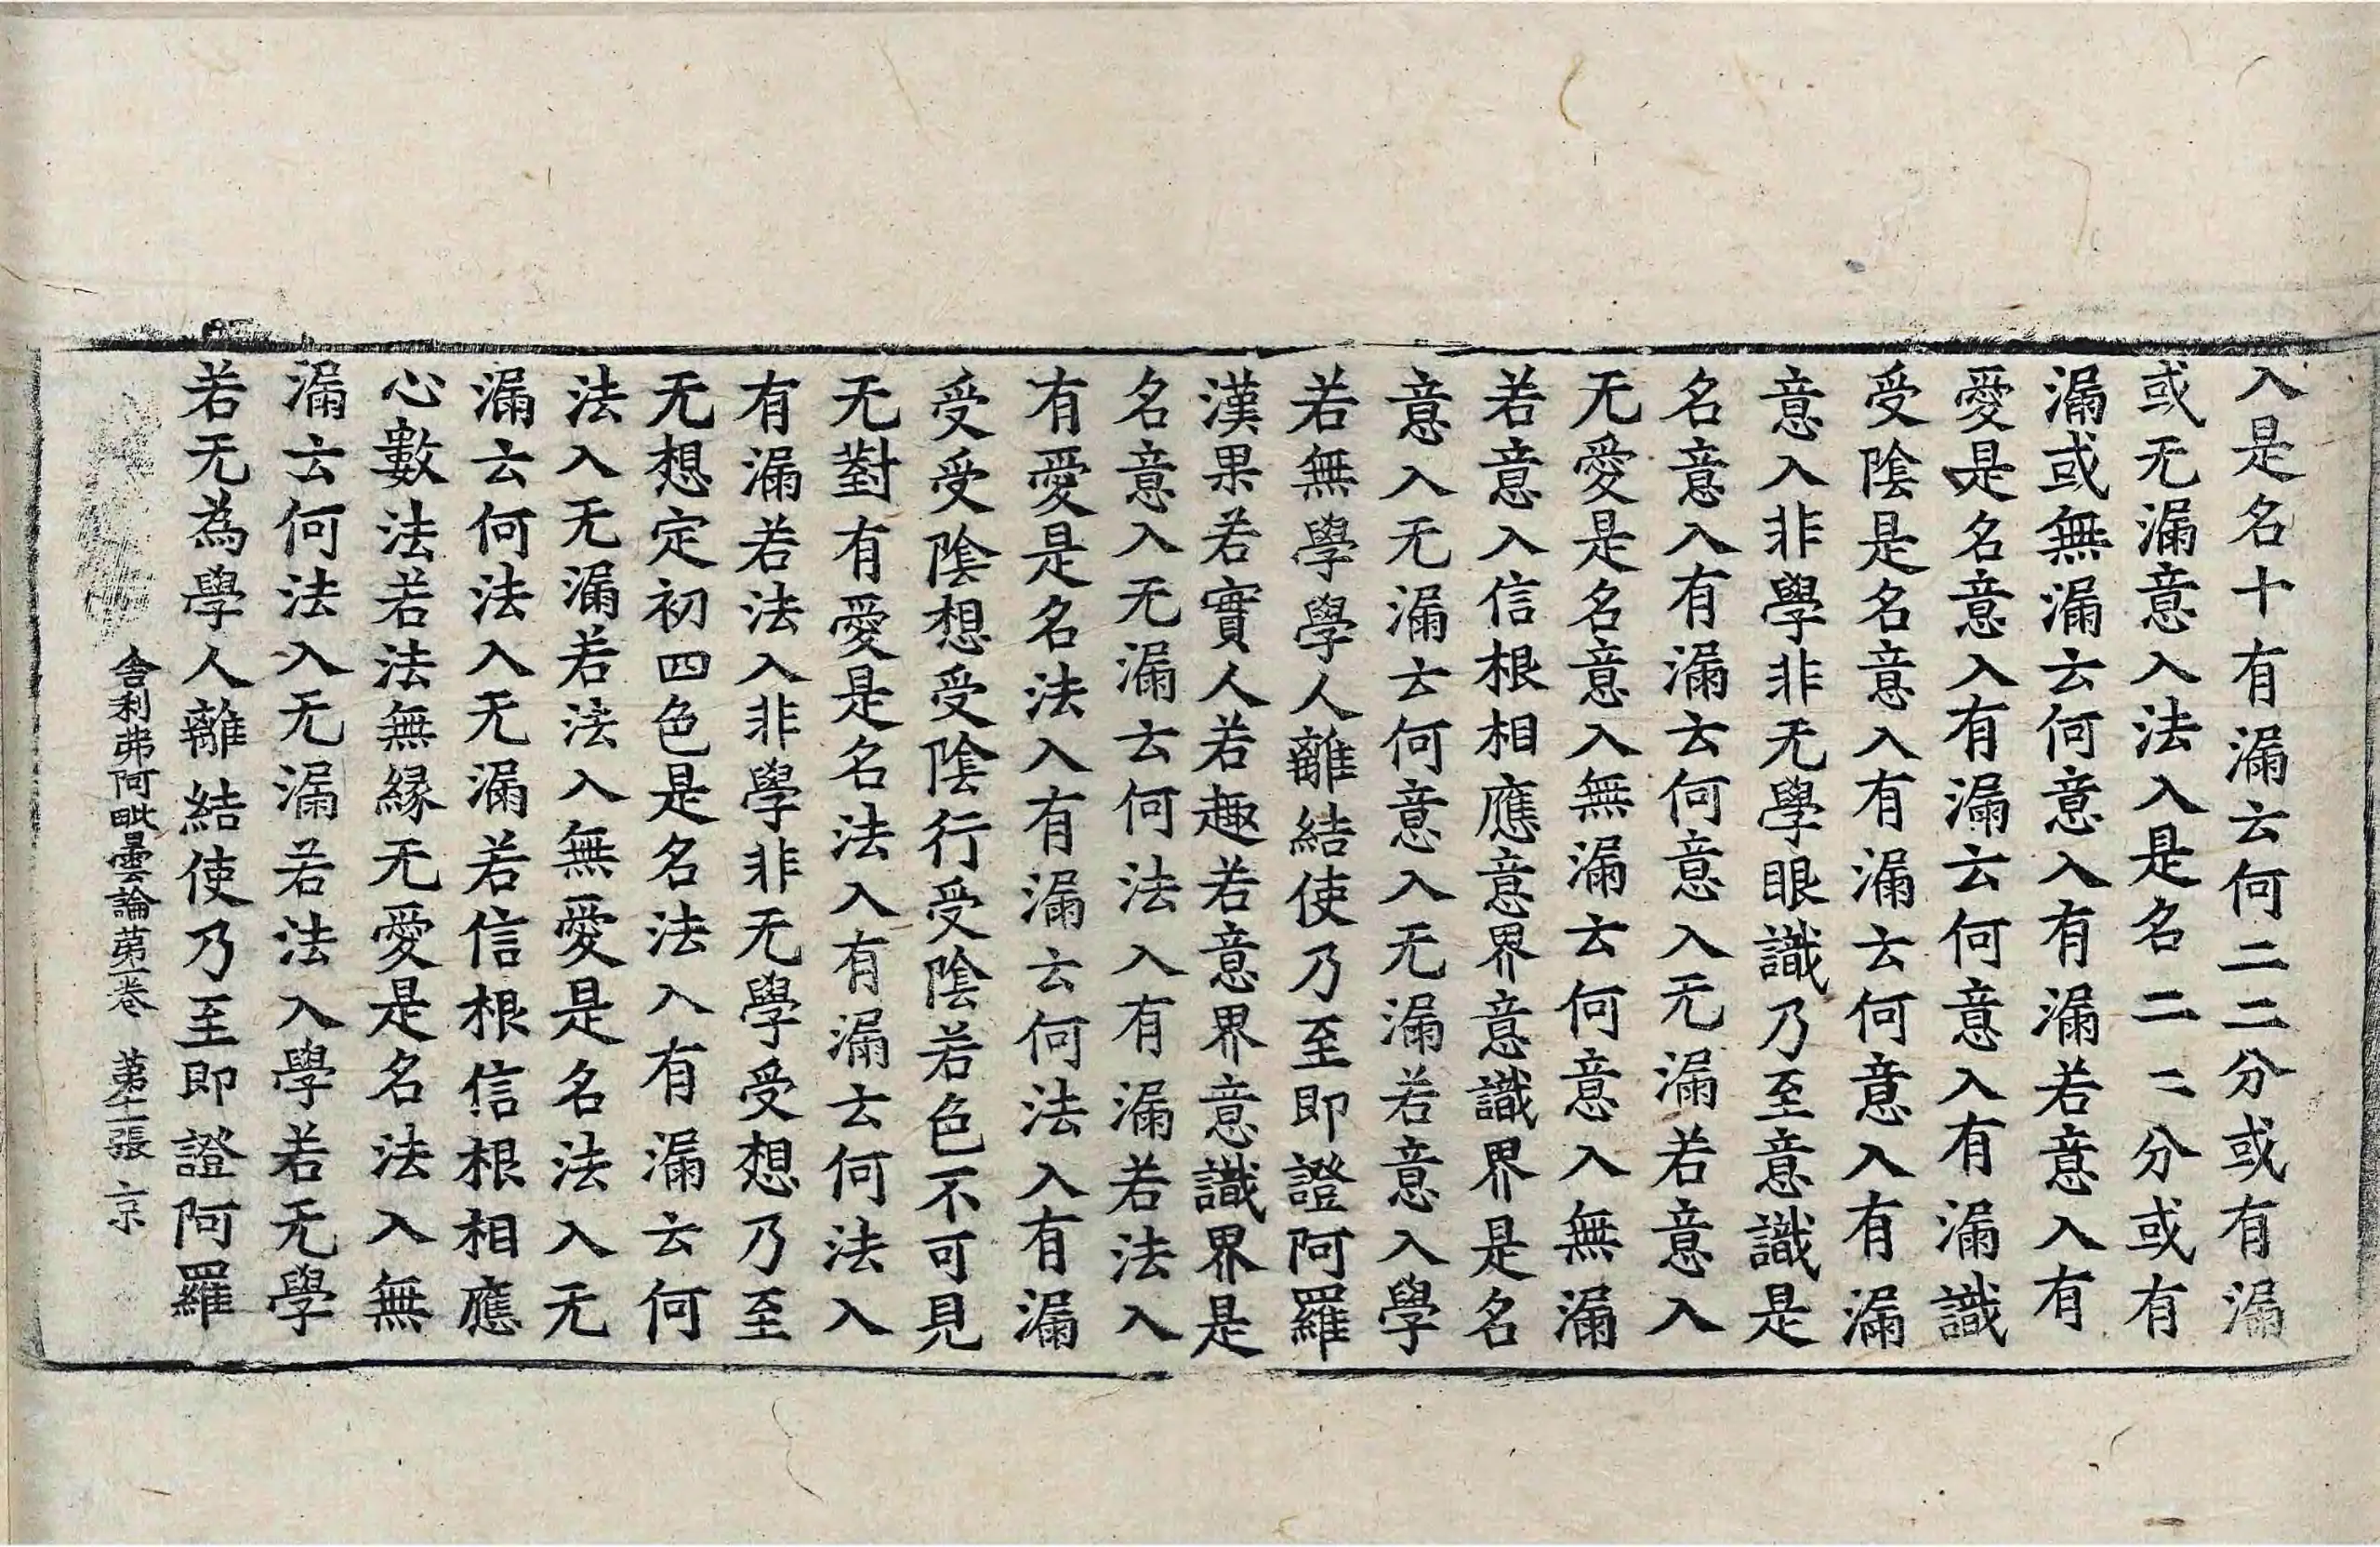 入是名十有漏云何二二分或有漏
或无漏意入法入是名二二分或有
漏或無漏云何意入有漏若意入有
愛是名意入有漏云何意入有漏識
受陰是名意入有漏云何意入有漏
意入非學非无學眼識乃至意識是
名意入有漏云何意入无漏若意入
无愛是名意入無漏云何意入無漏
若意入信根相應意界意識界是名
意入无漏云何意入无漏若意入學
若無學學人離結使乃至即證阿羅
漢果若實人若趣若意界意識界是
名意入无漏云何法入有漏若法入
有愛是名法入有漏云何法入有漏
受受陰想受陰行受陰若色不可見
无對有愛是名法入有漏云何法入
有漏若法入非學非无學受想乃至
无想定初四色是名法入有漏云何
法入无漏若法入無愛是名法入无
漏云何法入无漏若信根信根相應
心數法若法無緣无愛是名法入無
漏云何法入无漏若法入學若无學
若无為學人離結使乃至即證阿羅
舍利弗阿毗曇論第一卷 第十二張 京